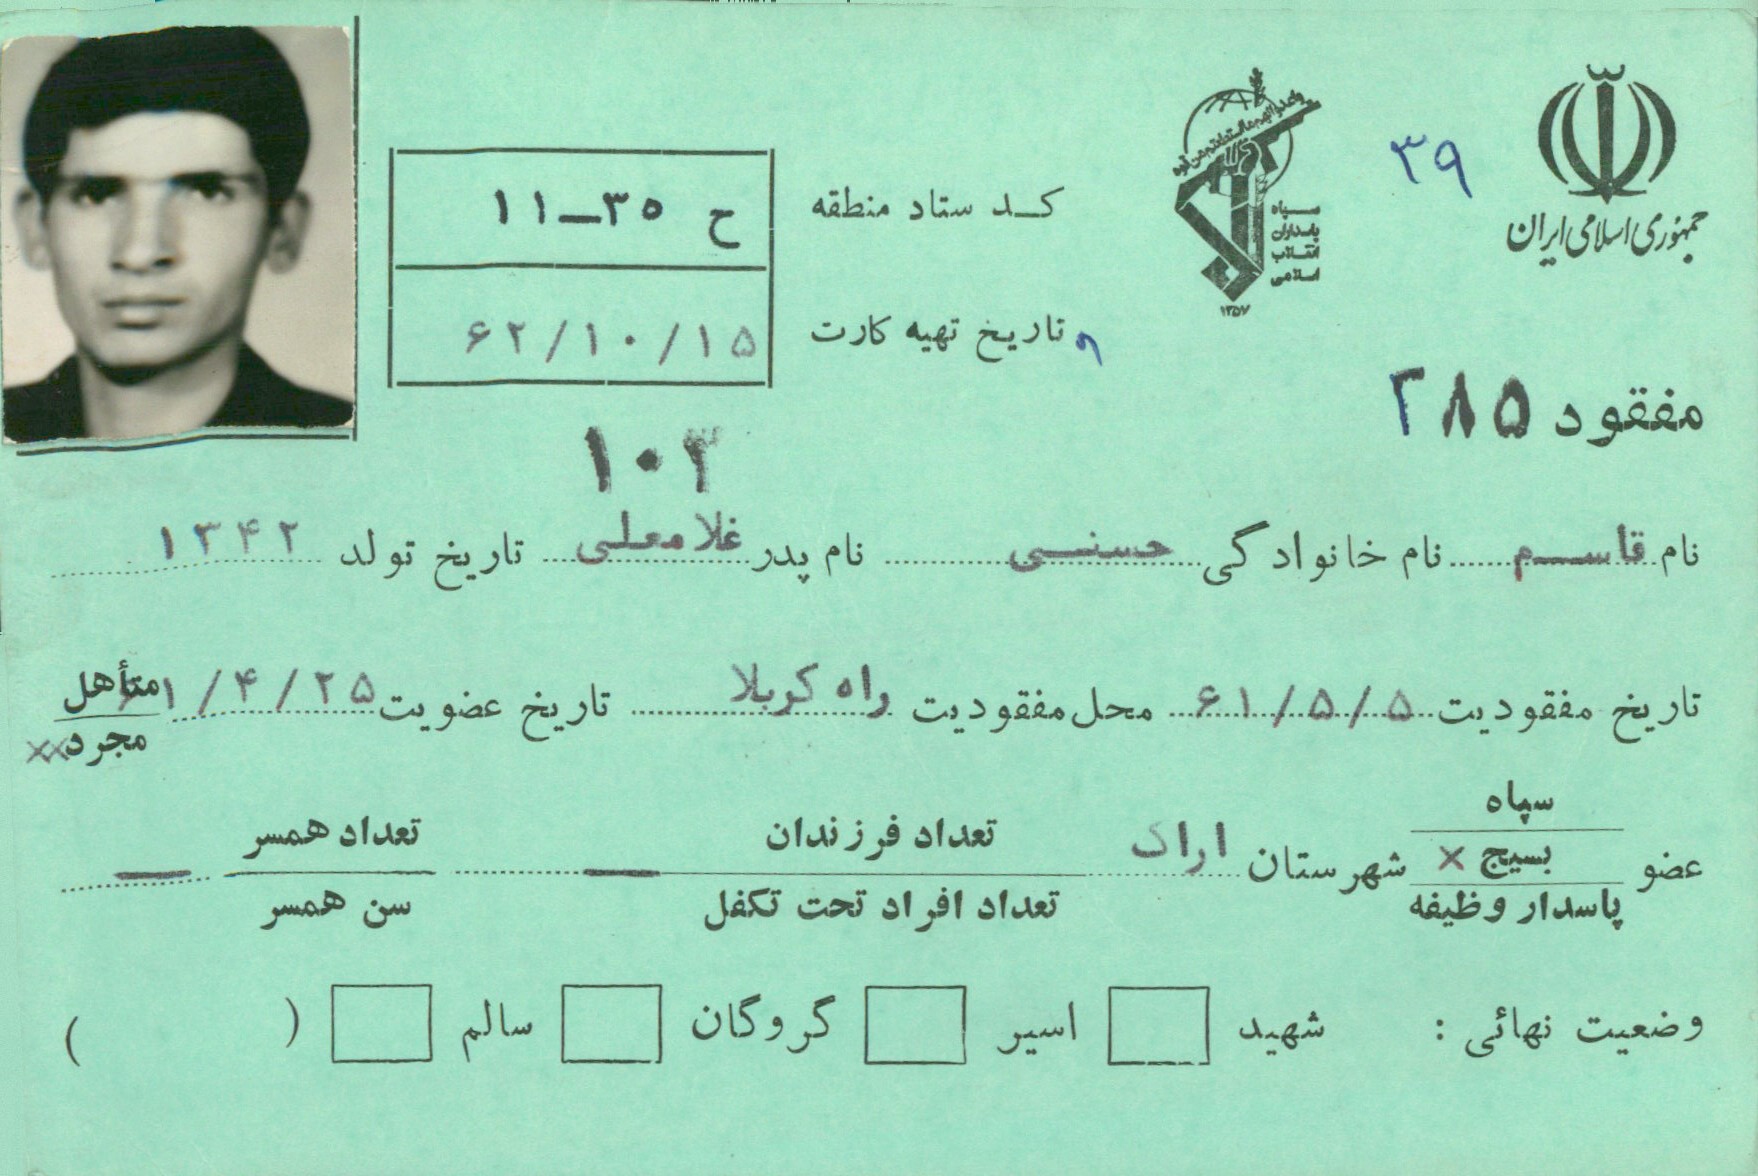 جمهوری اسلامی ایران
۳۹
سپاه
پاسداران
انقلاب
اسلامی
۱۳۵۷
کد ستاد منطقه ح ۳۵-۱۱
تاریخ تهیه کارت ۶۲/۱۰/۱۵
مفقود ۲۸۵
۱۰۳
نام قاسم نام خانوادگی حسنی نام پدر غلامعلی تاریخ تولد ۱۳۴۲
تاریخ مفقودیت ۶۱/۵/۵ محل مفقودیت راه کربلا تاریخ عضویت ۶۱/۴/۲۵ متأهل
مجرد xx
سپاه
عضو بسیج x شهرستان اراک تعداد فرزندان — تعداد همسر —
پاسدار وظیفه تعداد افراد تحت تکفل سن همسر
وضعیت نهائی : شهید اسیر گروگان سالم ( )